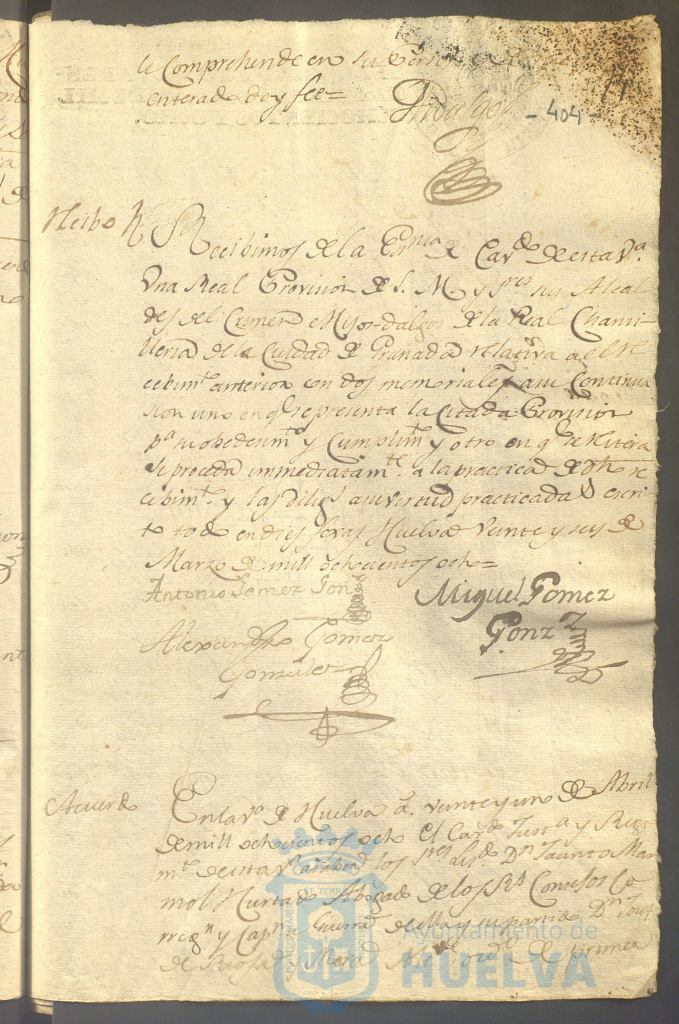 le Comprehende en su Persona
enterado doy fee=
Hidalgo
- 404 -
Recibo
Recibimos de la Esnia. de Cavdo. de esta Va.
Una Real Provision de S. M. y sres. sus Alcal
des del Crimen e Hijos-dalgo de la Real Chanci
lleria de la Ciudad de Granada relativa a el re
cebimto. anterior con dos memoriales a su Continua
sion uno en q. representa la Citada Provision
pa. su obedecimto. y Cumplimto. y otro en q. se
se proceda immediatamte. a la practica de dho. re
cebimto. y las diligs. a su virtud practicadas escri
to todo en dies foxas Huelva Veinte y seis de
Marzo de mill ochocientos ocho=
Antonio Gomez Gonz
Miguel Gomez
Gonzz
Alexandro Gomez
Gonzalez
Acuerdo
En la Va. de Huelva a veinte y uno de Abril
de mill ochocientos ocho el Cavdo. Justa. y Regi
mto. de esta Va. los sres. Licdo. Dn. Jacinto Mar
mol Hurtado Abogado de los Rs. Consejos Co
rregr. y Capn. a Guerra de ella y su partido Dn. Josef
de Mora Alce. ordo. de primer
Ayuntamiento de
HUELVA